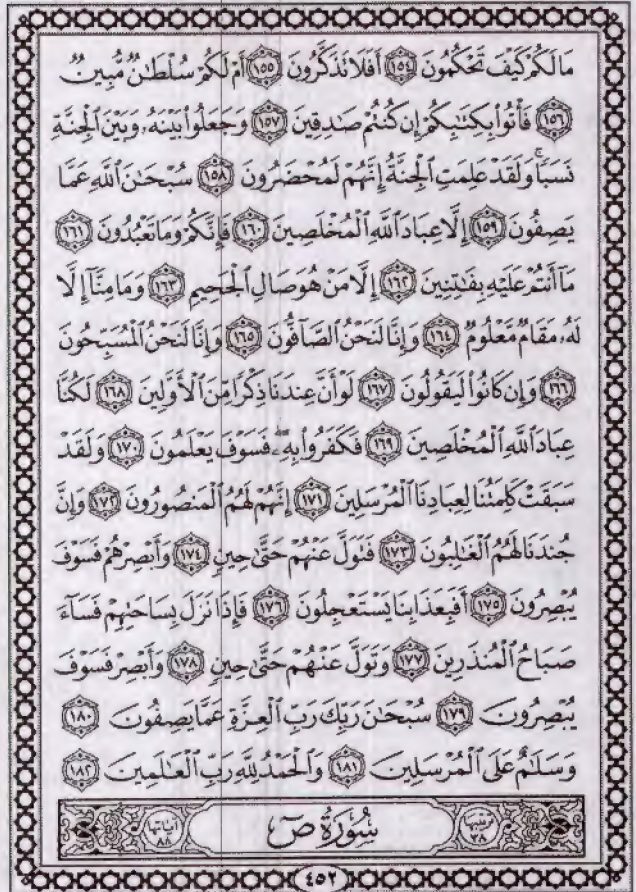 مَالَكُمْ كَيْفَ تَحْكُمُونَ ١٥٤ أَفَلَا تَذَكَّرُونَ ١٥٥ أَمْ لَكُمْ سُلْطَٰنٌ مُّبِينٌ
١٥٦ فَأْتُوا۟ بِكِتَٰبِكُمْ إِن كُنتُمْ صَٰدِقِينَ ١٥٧ وَجَعَلُوا۟ بَيْنَهُۥ وَبَيْنَ ٱلْجِنَّةِ
نَسَبًا ۚ وَلَقَدْ عَلِمَتِ ٱلْجِنَّةُ إِنَّهُمْ لَمُحْضَرُونَ ١٥٨ سُبْحَٰنَ ٱللَّهِ عَمَّا
يَصِفُونَ ١٥٩ إِلَّا عِبَادَ ٱللَّهِ ٱلْمُخْلَصِينَ ١٦٠ فَإِنَّكُمْ وَمَا تَعْبُدُونَ ١٦١
مَآ أَنتُمْ عَلَيْهِ بِفَٰتِنِينَ ١٦٢ إِلَّا مَنْ هُوَ صَالِ ٱلْجَحِيمِ ١٦٣ وَمَا مِنَّآ إِلَّا
لَهُۥ مَقَامٌ مَّعْلُومٌ ١٦٤ وَإِنَّا لَنَحْنُ ٱلصَّآفُّونَ ١٦٥ وَإِنَّا لَنَحْنُ ٱلْمُسَبِّحُونَ
١٦٦ وَإِن كَانُوا۟ لَيَقُولُونَ ١٦٧ لَوْ أَنَّ عِندَنَا ذِكْرًا مِّنَ ٱلْأَوَّلِينَ ١٦٨ لَكُنَّا
عِبَادَ ٱللَّهِ ٱلْمُخْلَصِينَ ١٦٩ فَكَفَرُوا۟ بِهِۦ ۖ فَسَوْفَ يَعْلَمُونَ ١٧٠ وَلَقَدْ
سَبَقَتْ كَلِمَتُنَا لِعِبَادِنَا ٱلْمُرْسَلِينَ ١٧١ إِنَّهُمْ لَهُمُ ٱلْمَنصُورُونَ ١٧٢ وَإِنَّ
جُندَنَا لَهُمُ ٱلْغَٰلِبُونَ ١٧٣ فَتَوَلَّ عَنْهُمْ حَتَّىٰ حِينٍ ١٧٤ وَأَبْصِرْهُمْ فَسَوْفَ
يُبْصِرُونَ ١٧٥ أَفَبِعَذَابِنَا يَسْتَعْجِلُونَ ١٧٦ فَإِذَا نَزَلَ بِسَاحَتِهِمْ فَسَآءَ
صَبَاحُ ٱلْمُنذَرِينَ ١٧٧ وَتَوَلَّ عَنْهُمْ حَتَّىٰ حِينٍ ١٧٨ وَأَبْصِرْ فَسَوْفَ
يُبْصِرُونَ ١٧٩ سُبْحَٰنَ رَبِّكَ رَبِّ ٱلْعِزَّةِ عَمَّا يَصِفُونَ ١٨٠
وَسَلَٰمٌ عَلَى ٱلْمُرْسَلِينَ ١٨١ وَٱلْحَمْدُ لِلَّهِ رَبِّ ٱلْعَٰلَمِينَ ١٨٢
ترتيبها ٣٨ سُورَةُ صٓ آياتها ٨٨
٤٥٢